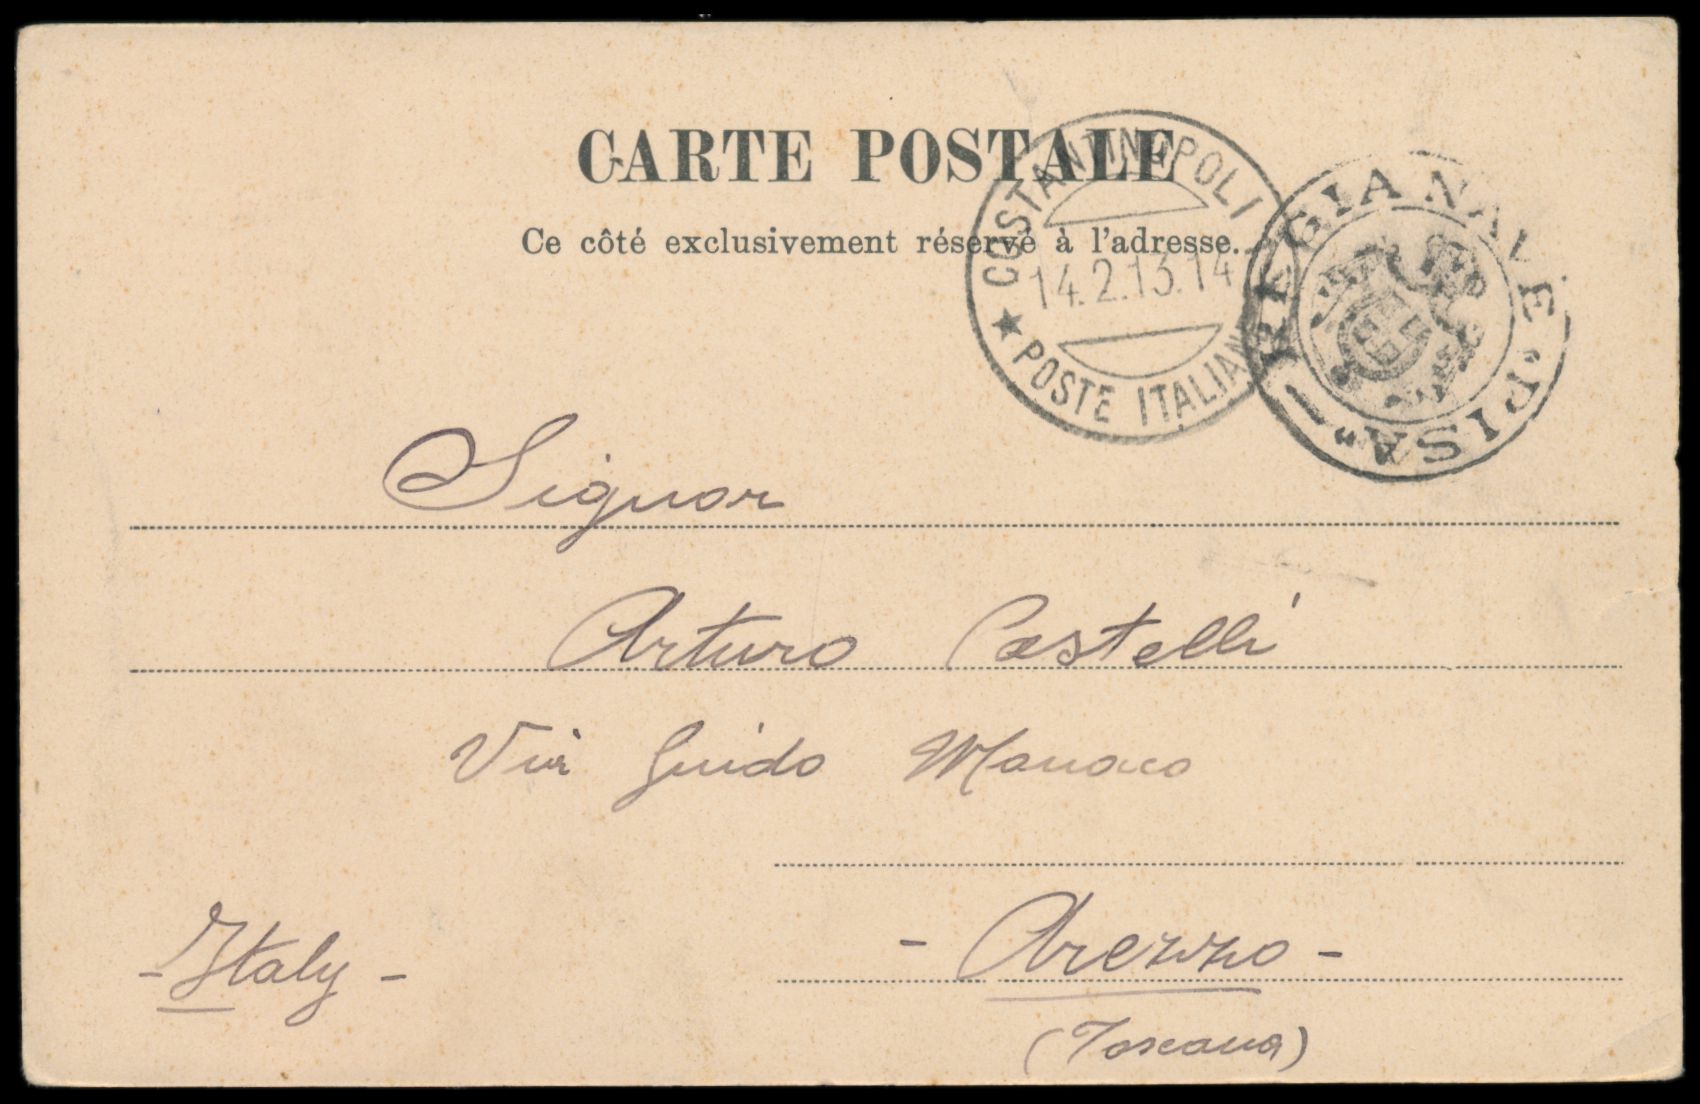 CARTE POSTALE
Ce côté exclusivement réservé à l'adresse.
COSTANTINOPOLI
14.2.13.14
★ POSTE ITALIANE
REGIA NAVE "PISA"
Signor
Arturo Castelli
Via Guido Monaco
- Italy -
- Arezzo -
(Toscana)